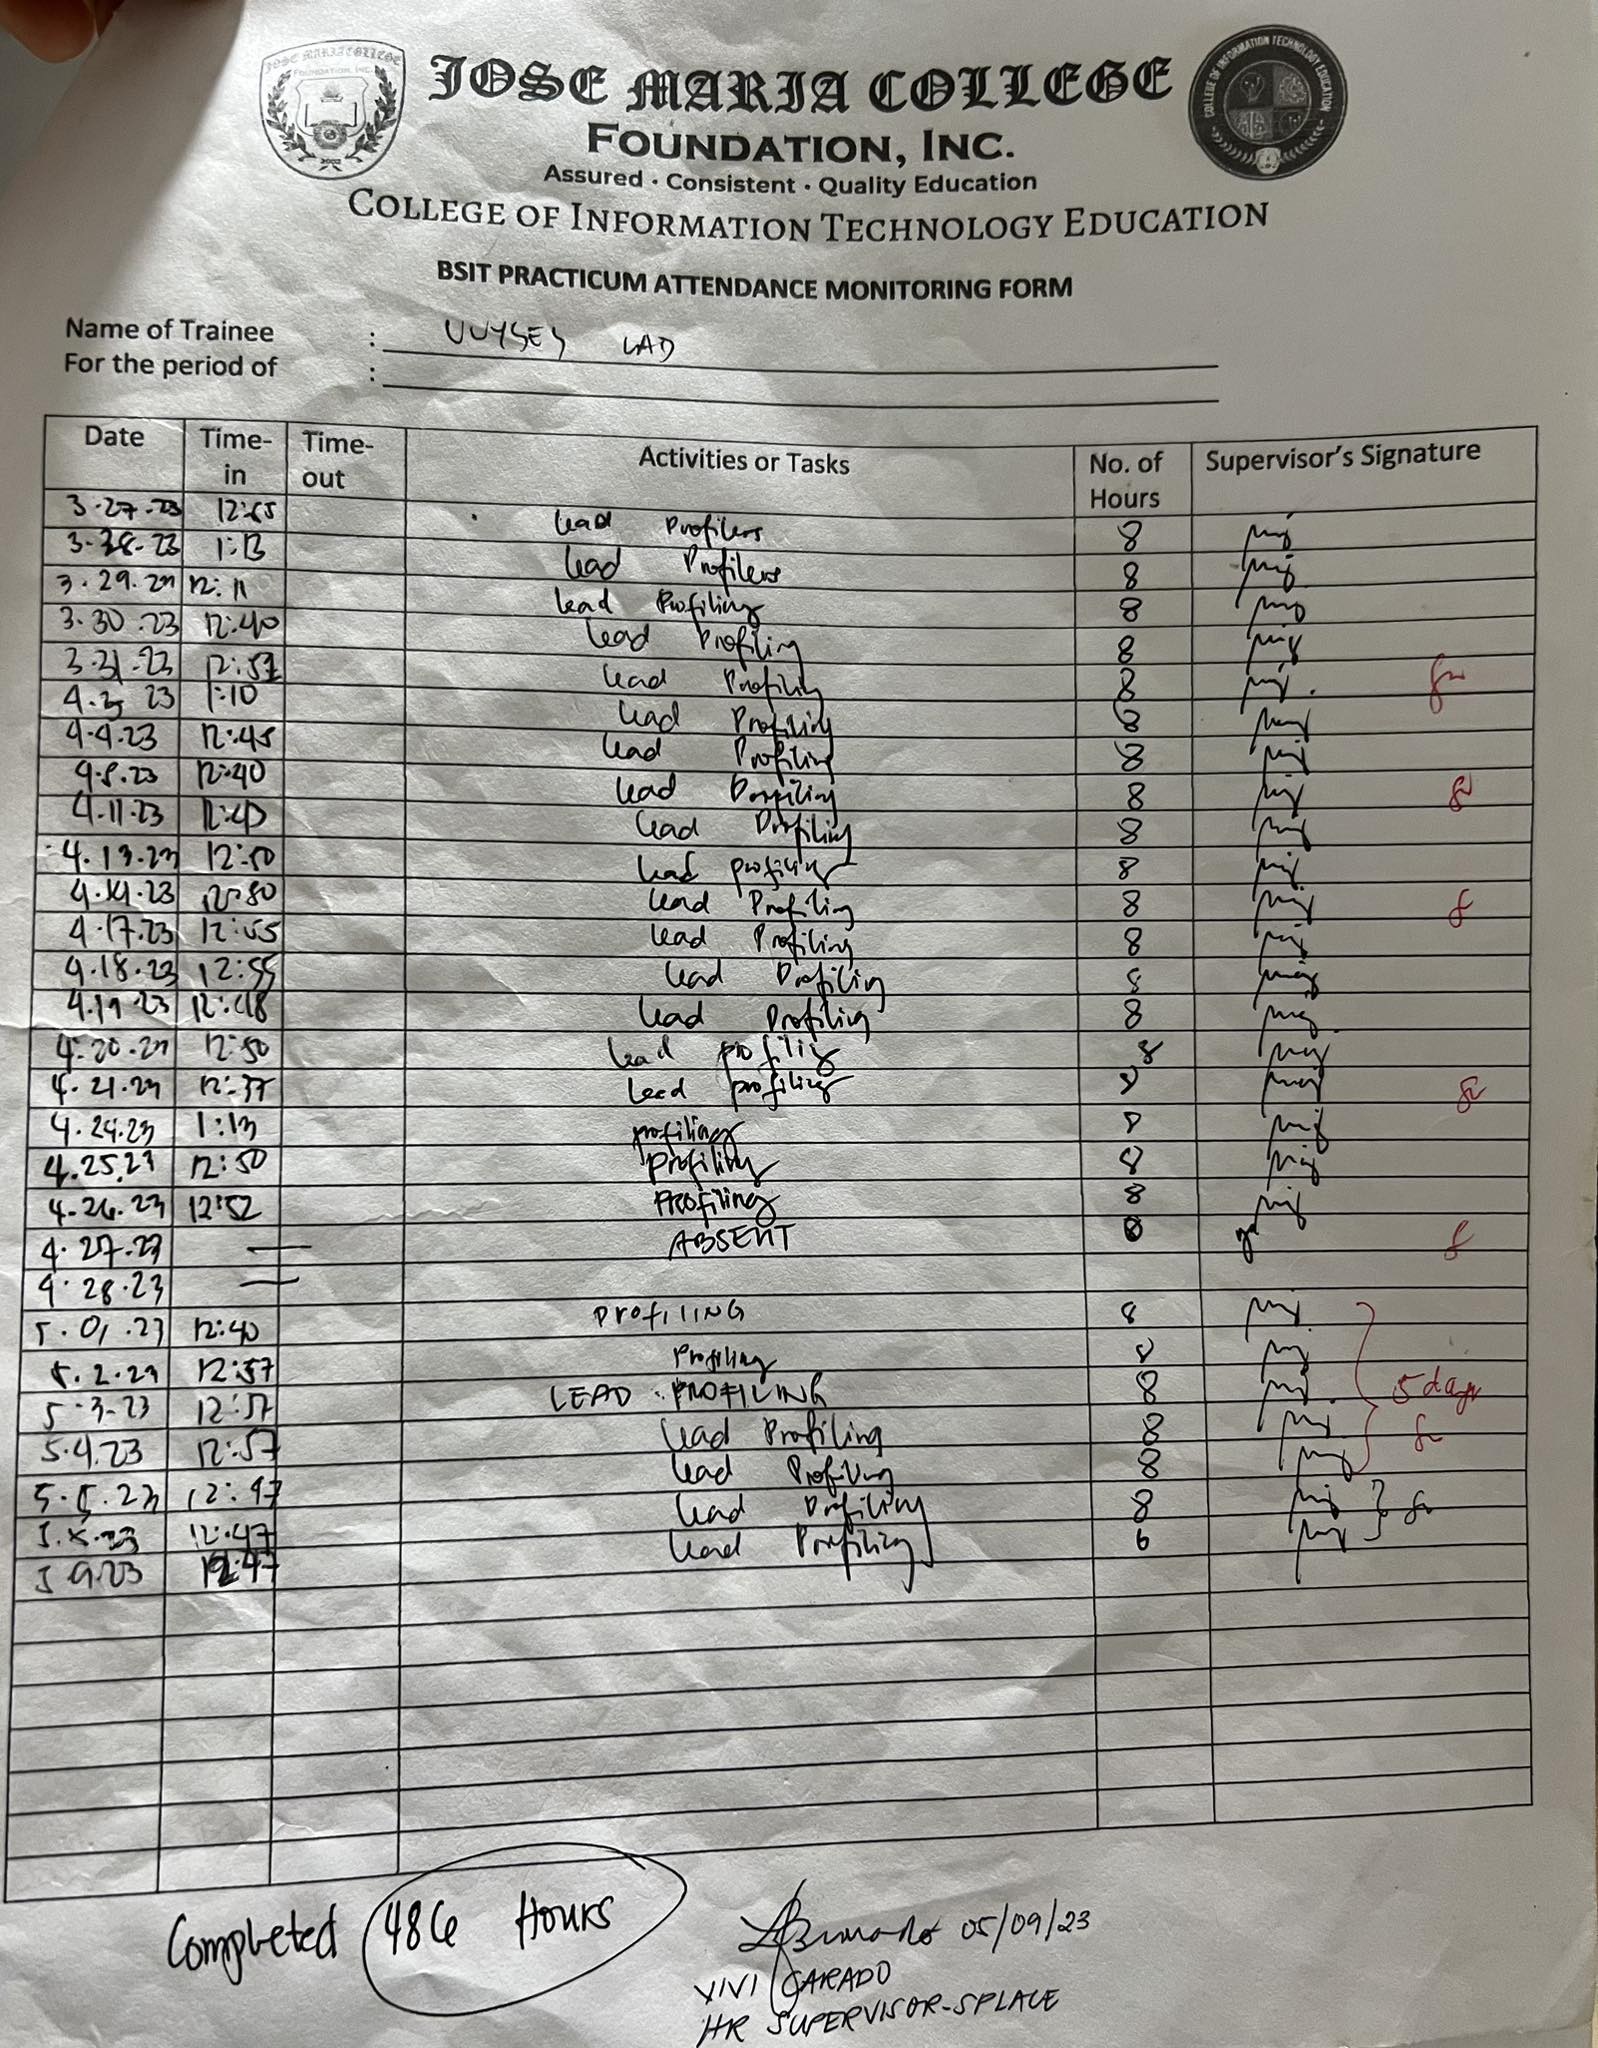 JOSE MARIA COLLEGE
FOUNDATION, INC.
Assured · Consistent · Quality Education
COLLEGE OF INFORMATION TECHNOLOGY EDUCATION
BSIT PRACTICUM ATTENDANCE MONITORING FORM
Name of Trainee : LAD
For the period of :
Date Time-in Time-out Activities or Tasks No. of Hours Supervisor's Signature
3-27-23 Lead Profilers 8
3-28-23 1:13 Lead Profilers 8
3.29.23 12:11 Lead Profiling 8
3.30.23 12:40 Lead Profiling 8
3.31.23 12:57 Lead Profiling 8
4.3.23 1:10 Lead Profiling 8
4.4.23 12:45 Lead Profiling 8
12:40 Lead Profiling 8
4.11.23 Lead Profiling 8
4.13.23 12:50 Lead profiling 8
4.14.23 Lead Profiling 8
4.17.23 Lead Profiling 8
4.18.23 12:55 Lead Profiling 8
4.19.23 12:48 Lead Profiling 8
4.20.23 12:50 Lead profiling 8
4.21.23 12:37 Lead profiling 8
4.24.23 1:13 profiling 8
4.25.23 12:50 profiling 8
4.26.23 12:52 Profiling 8
4.27.23 — ABSENT 0
4.28.23 —
5.01.23 12:40 PROFILING 8
5.2.23 12:57 Profiling 8
5-3-23 12:57 LEAD PROFILING 8 5 days
5.4.23 12:57 Lead Profiling 8
5.5.23 12:47 Lead Profiling 8
5.8.23 12:47 Lead Profiling 8
5.9.23 12:47 Lead Profiling 6
Completed 486 Hours
05/09/23
VIVI GARADO
HR SUPERVISOR-SPLACE